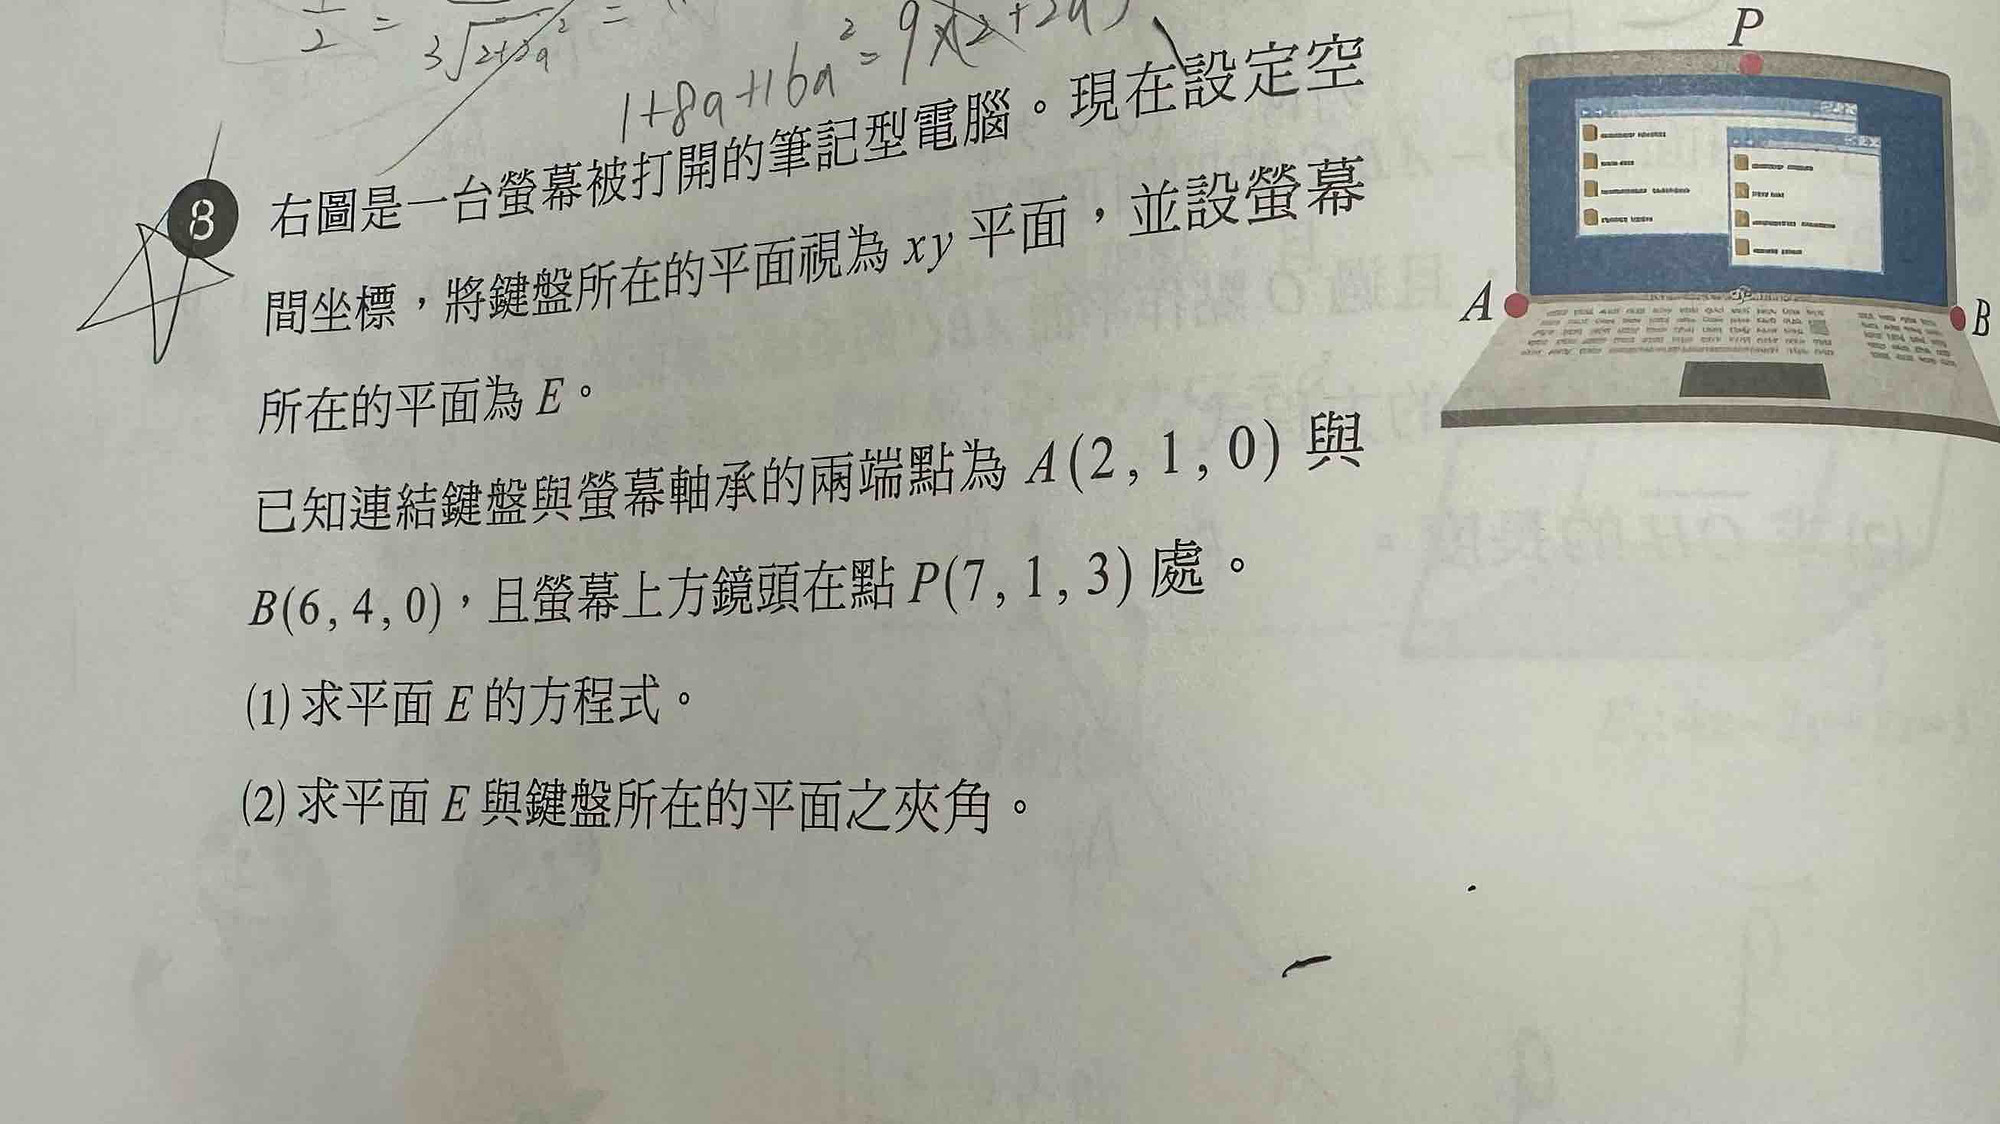 1/2 = 3√2+2a² =
1+8a+16a² = 9x(2+2a²)
8 右圖是一台螢幕被打開的筆記型電腦。現在設定空
間坐標,將鍵盤所在的平面視為 xy 平面,並設螢幕
所在的平面為 E。
已知連結鍵盤與螢幕軸承的兩端點為 A(2, 1, 0) 與
B(6, 4, 0),且螢幕上方鏡頭在點 P(7, 1, 3) 處。
(1) 求平面 E 的方程式。
(2) 求平面 E 與鍵盤所在的平面之夾角。
P
A
B
hp